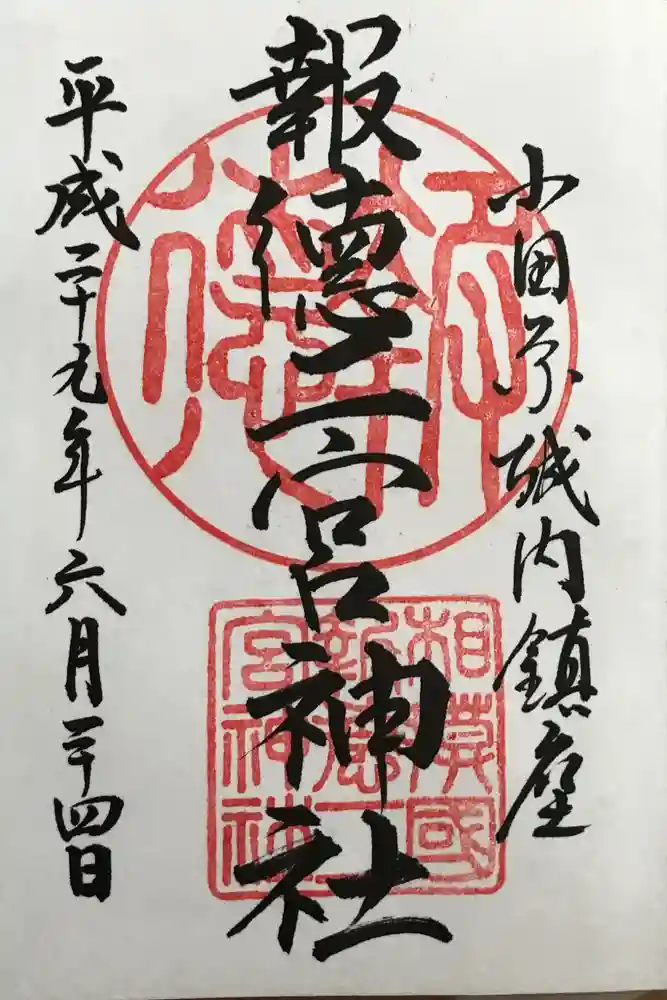 小田原城内鎮座
報徳二宮神社
平成二十九年六月二十四日
相模國
報徳二
宮神社